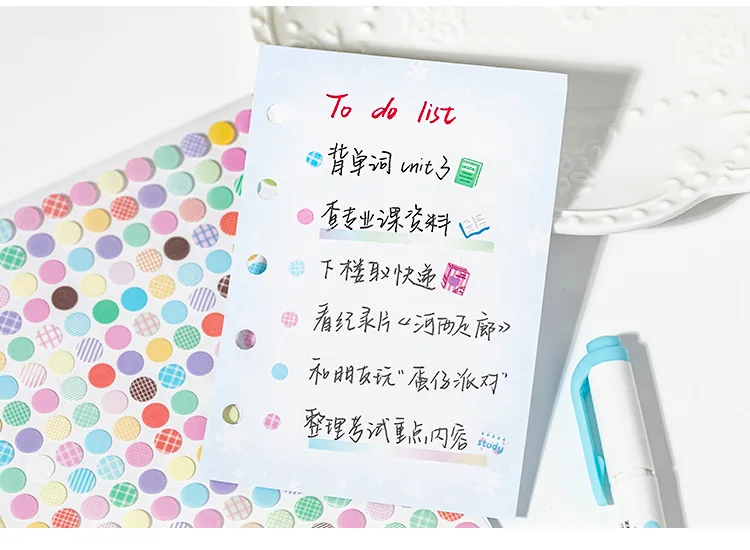 To do list
背单词 unit 3
查专业课资料
下楼取快递
看纪录片《河西走廊》
和朋友玩“蛋仔派对”
整理考试重点内容
study